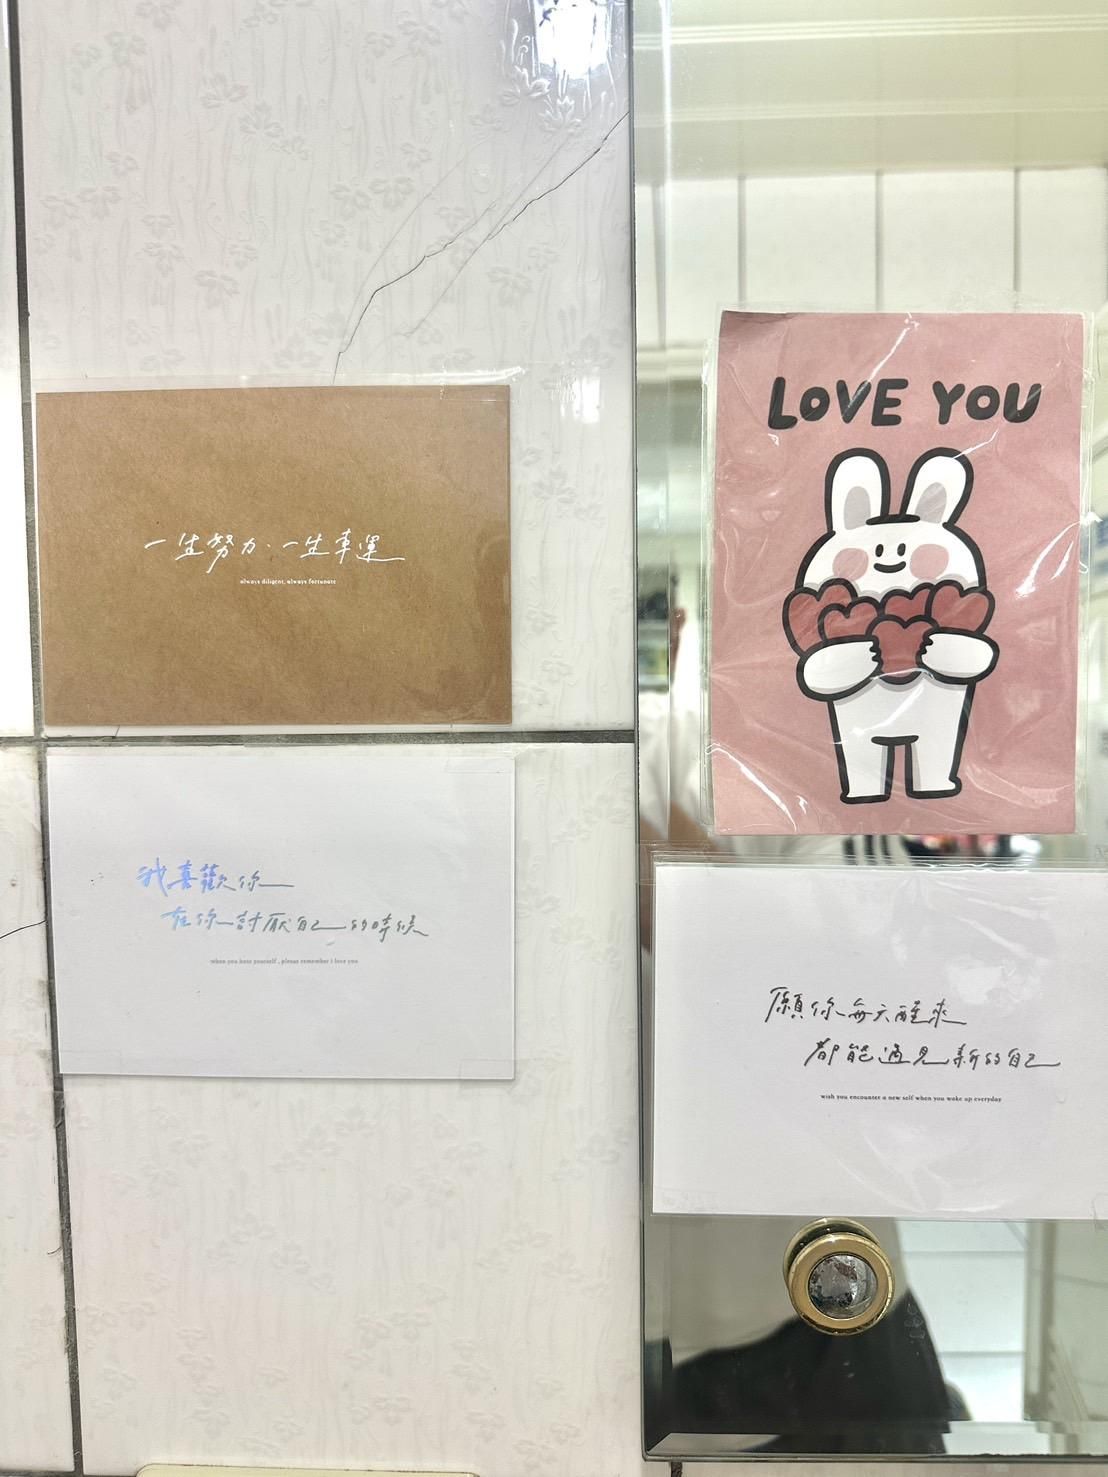 一生努力、一生幸運
always diligent, always fortunate
我喜歡你
在你討厭自己的時候
when you hate yourself , please remember i love you
LOVE YOU
願你每天醒來
都能遇見新的自己
wish you encounter a new self when you wake up everyday